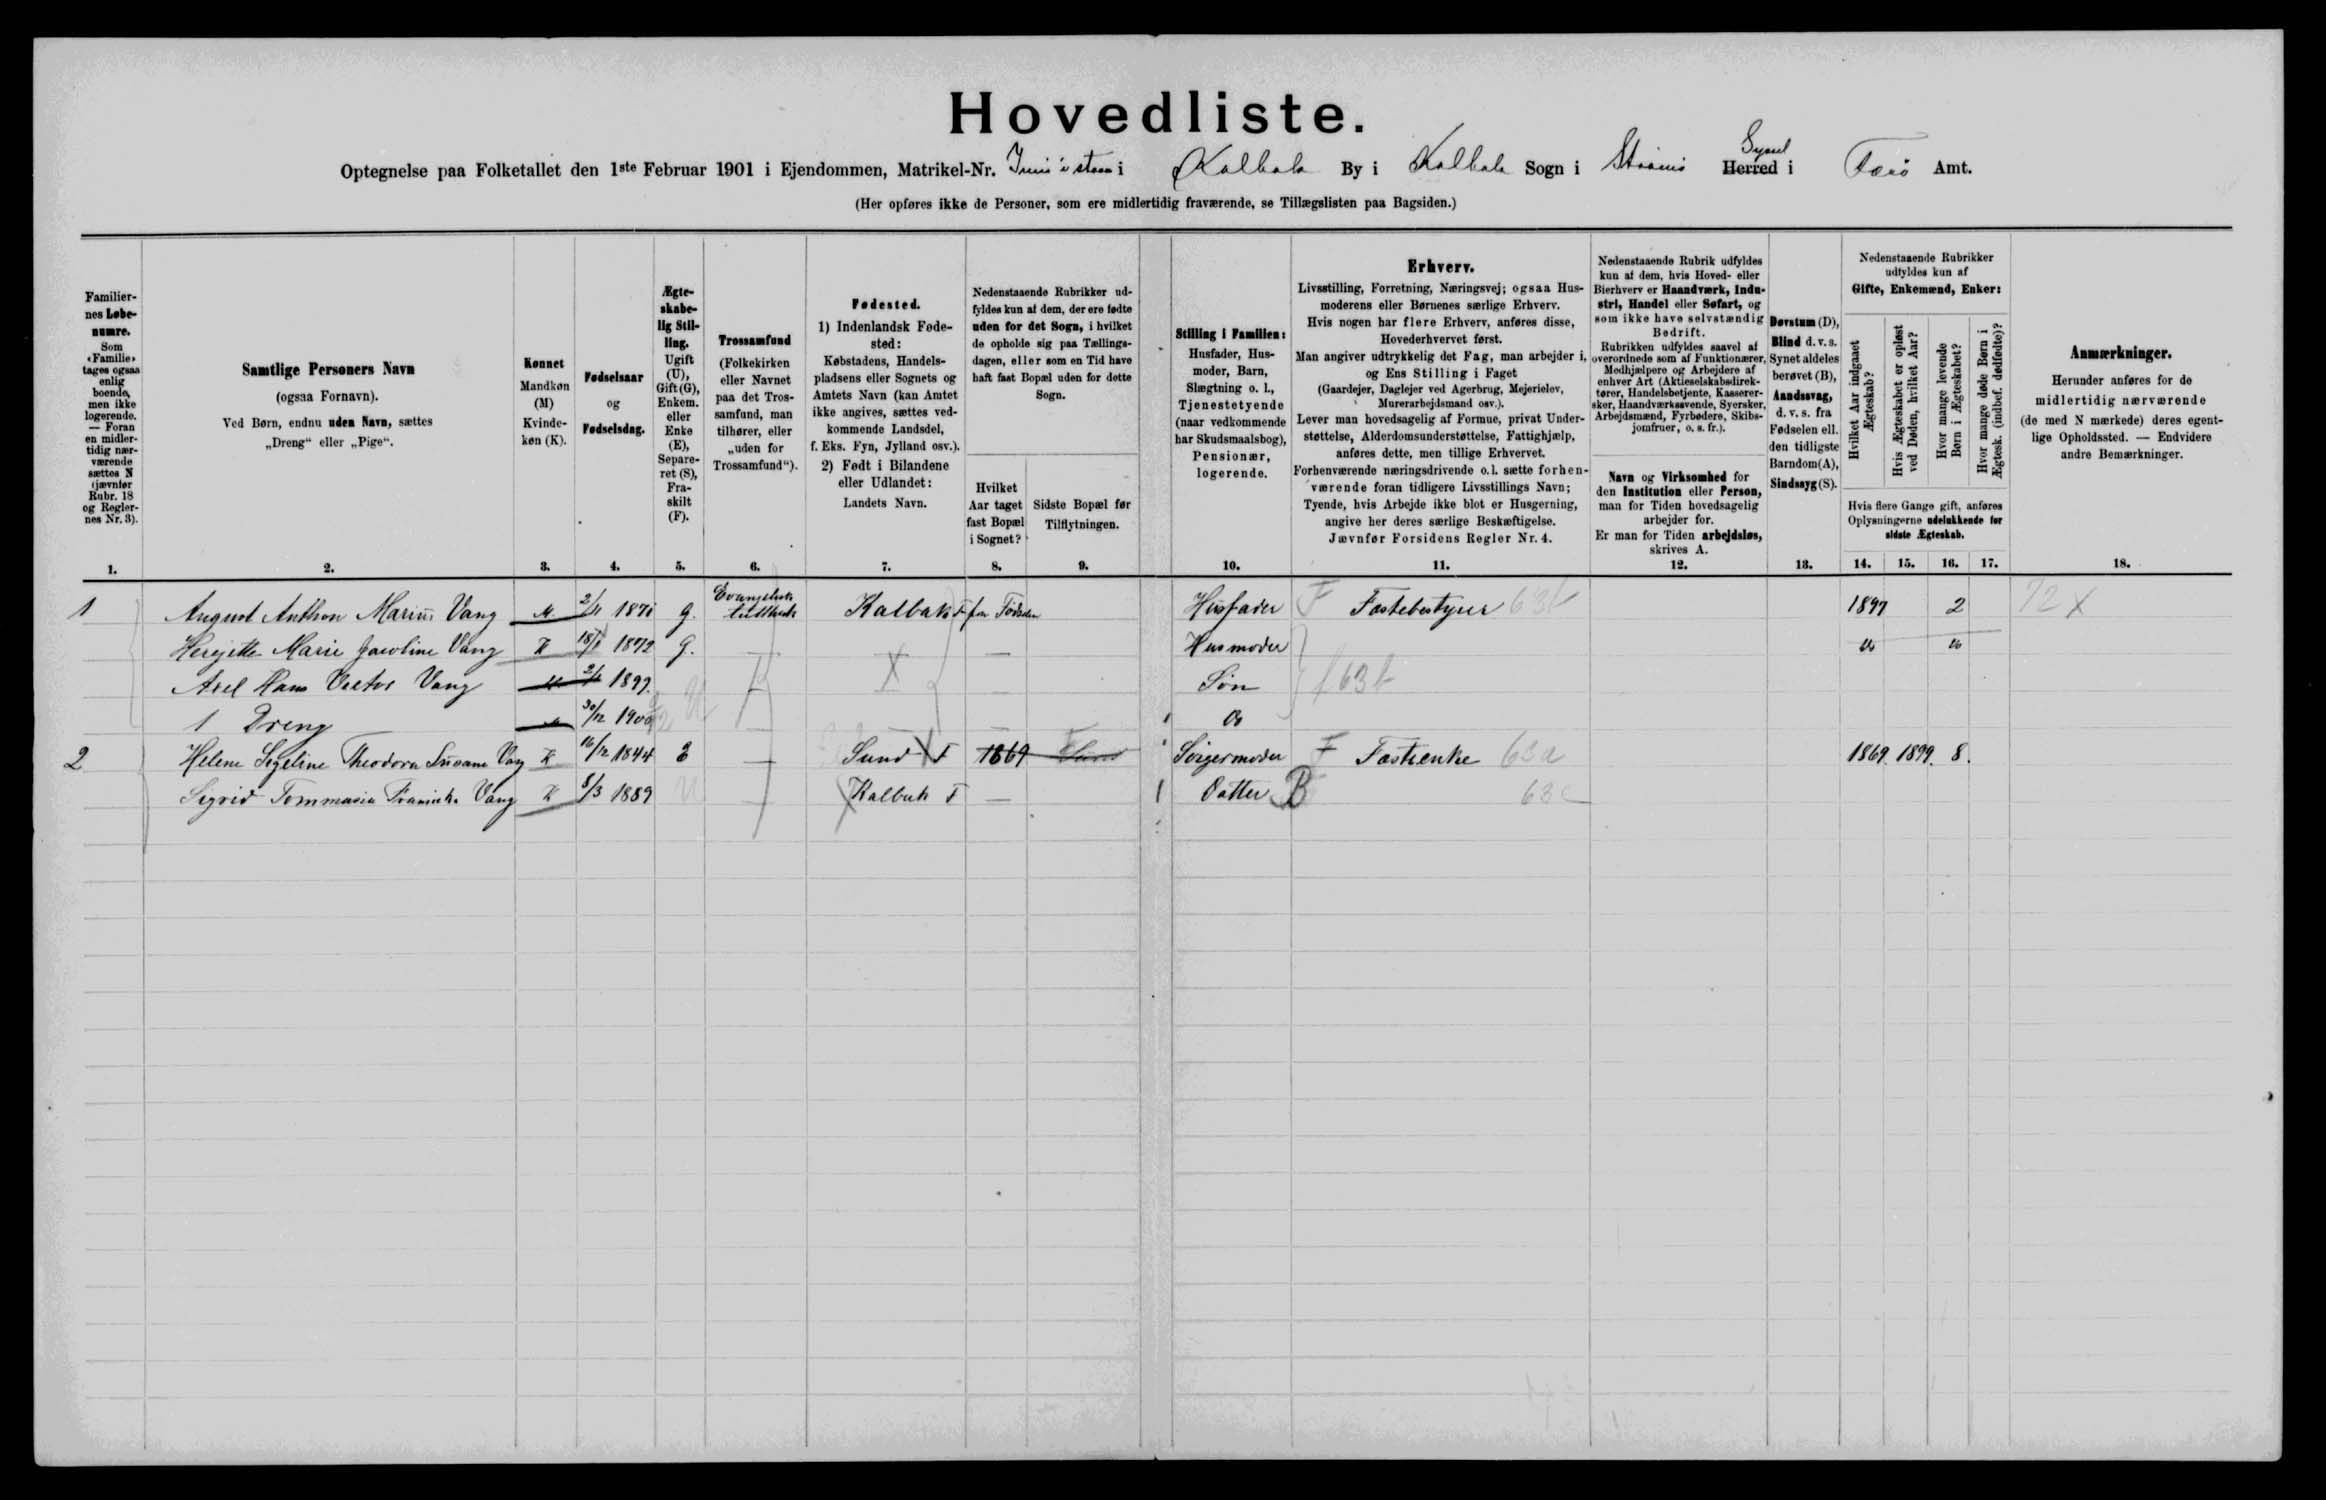 Hovedliste.
Optegnelse paa Folketallet den 1ste Februar 1901 i Ejendommen, Matrikel-Nr. Inni i stova i Kalbak By i Kalbak Sogn i Strømø Herred Syssel i Færø Amt.
(Her opføres ikke de Personer, som ere midlertidig fraværende, se Tillægslisten paa Bagsiden.)
Familiernes Løbenumre. Som «Familie» tages ogsaa enlig boende, men ikke logerende. — Foran en midlertidig nærværende sættes N (jævnfør Rubr. 18 og Reglernes Nr. 3).
Samtlige Personers Navn
(ogsaa Fornavn).
Ved Børn, endnu uden Navn, sættes „Dreng“ eller „Pige“.
Kønnet
Mandkøn (M) Kvindekøn (K).
Fødselsaar og Fødselsdag.
Ægteskabelig Stilling. Ugift (U), Gift (G), Enkem. eller Enke (E), Separeret (S), Fraskilt (F).
Trossamfund
(Folkekirken eller Navnet paa det Trossamfund, man tilhører, eller „uden for Trossamfund“).
Fødested.
1) Indenlandsk Fødested: Købstadens, Handelspladsens eller Sognets og Amtets Navn (kan Amtet ikke angives, sættes vedkommende Landsdel, f. Eks. Fyn, Jylland osv.).
2) Født i Bilandene eller Udlandet: Landets Navn.
Nedenstaaende Rubrikker udfyldes kun af dem, der ere fødte uden for det Sogn, i hvilket de opholde sig paa Tællingsdagen, eller som en Tid have haft fast Bopæl uden for dette Sogn.
Hvilket Aar taget fast Bopæl i Sognet?
Sidste Bopæl før Tilflytningen.
Stilling i Familien:
Husfader, Husmoder, Barn, Slægtning o. l., Tjenestetyende (naar vedkommende har Skudsmaalsbog), Pensionær, logerende.
Erhverv.
Livsstilling, Forretning, Næringsvej; ogsaa Husmoderens eller Børnenes særlige Erhverv.
Hvis nogen har flere Erhverv, anføres disse, Hovederhvervet først.
Man angiver udtrykkelig det Fag, man arbejder i, og Ens Stilling i Faget
(Gaardejer, Daglejer ved Agerbrug, Mejerielev, Murerarbejdsmand osv.).
Lever man hovedsagelig af Formue, privat Understøttelse, Alderdomsunderstøttelse, Fattighjælp, anføres dette, men tillige Erhvervet.
Forhenværende næringsdrivende o. l. sætte forhenværende foran tidligere Livsstillings Navn;
Tyende, hvis Arbejde ikke blot er Husgerning, angive her deres særlige Beskæftigelse.
Jævnfør Forsidens Regler Nr. 4.
Nedenstaaende Rubrik udfyldes kun af dem, hvis Hoved- eller Bierhverv er Haandværk, Industri, Handel eller Søfart, og som ikke have selvstændig Bedrift.
Rubrikken udfyldes saavel af overordnede som af Funktionærer, Medhjælpere og Arbejdere af enhver Art (Aktieselskabsdirektører, Handelsbetjente, Kasserersker, Haandværkssvende, Syersker, Arbejdsmænd, Fyrbødere, Skibsjomfruer, o. s. fr.).
Navn og Virksomhed for den Institution eller Person, man for Tiden hovedsagelig arbejder for.
Er man for Tiden arbejdsløs, skrives A.
Døvstum (D), Blind d. v. s. Synet aldeles berøvet (B), Aandssvag, d. v. s. fra Fødselen ell. den tidligste Barndom (A), Sindssyg (S).
Nedenstaaende Rubrikker udfyldes kun af Gifte, Enkemænd, Enker:
Hvilket Aar indgaaet Ægteskab?
Hvis Ægteskabet er opløst ved Døden, hvilket Aar?
Hvor mange levende Børn i Ægteskabet?
Hvor mange døde Børn i Ægtesk. (indbef. dødfødte)?
Hvis flere Gange gift, anføres Oplysningerne udelukkende for sidste Ægteskab.
Anmærkninger.
Herunder anføres for de midlertidig nærværende (de med N mærkede) deres egentlige Opholdssted. — Endvidere andre Bemærkninger.
1. 2. 3. 4. 5. 6. 7. 8. 9. 10. 11. 12. 13. 14. 15. 16. 17. 18.
1 August Anthon Marius Vang M 2/11 1871 G. Evangelisk luthersk Kalbak F fra Fødselen Husfader F Fæstebestyrer 63b 1897 2 72 X
Marie Jacobine Vang K 18/1 1872 G. — X — Husmoder do do
Axel Hans Victor Vang M 1897. — Søn f 63b
1 Dreng M 30/12 1900 U — — do
2 Helene Theodora Susane Vang K 16/12 1844 E — Sund X F 1869 Sund Svigermoder F Fæsteenke 63a 1869. 1899. 8.
Sigrid Tommasia Vang K 8/3 1889 U — X Kalbak F — Datter B 63c